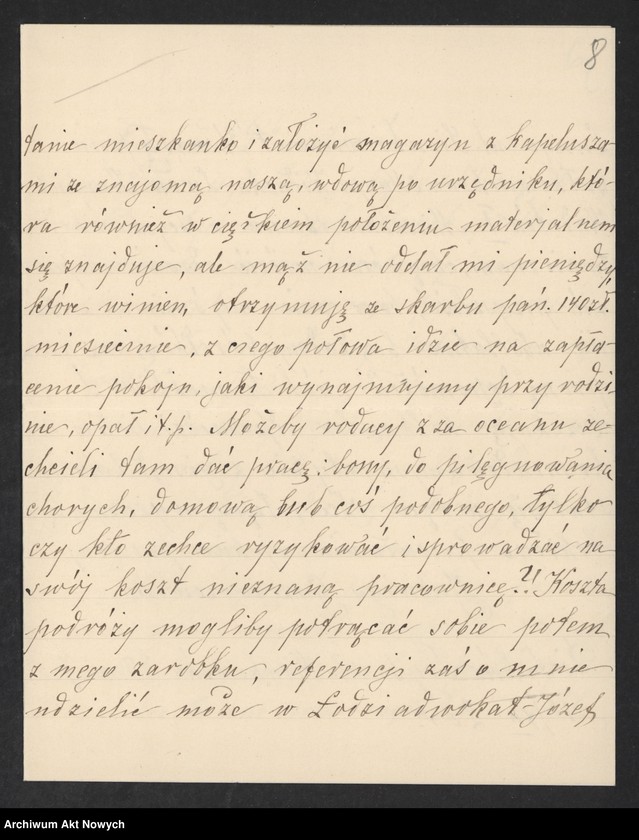 8
tanie mieszkanko i założyć magazyn z kapelusza-
mi ze znajomą naszą, wdową po urzędniku, któ-
ra również w ciężkiem położeniu materjalnem
się znajduje, ale mąż nie oddał mi pieniędzy,
które winien, otrzymuję ze skarbu pań. 140 zł.
miesiecznie, z czego połowa idzie na zapła-
cenie pokoju, jaki wynajmujemy przy rodzi-
nie, opał i t. p. Możeby rodacy z za oceanu ze-
chcieli tam dać pracę: bony, do pielęgnowania
chorych, domową lub coś podobnego, tylko
czy kto zechce ryzykować i sprowadzać na
swój koszt nieznaną pracownicę?!! Koszta
podróży mogliby potrącać sobie potem
z mego zarobku, referencji zaś o mnie
udzielić może w Łodzi adwokat-Józef
Archiwum Akt Nowych